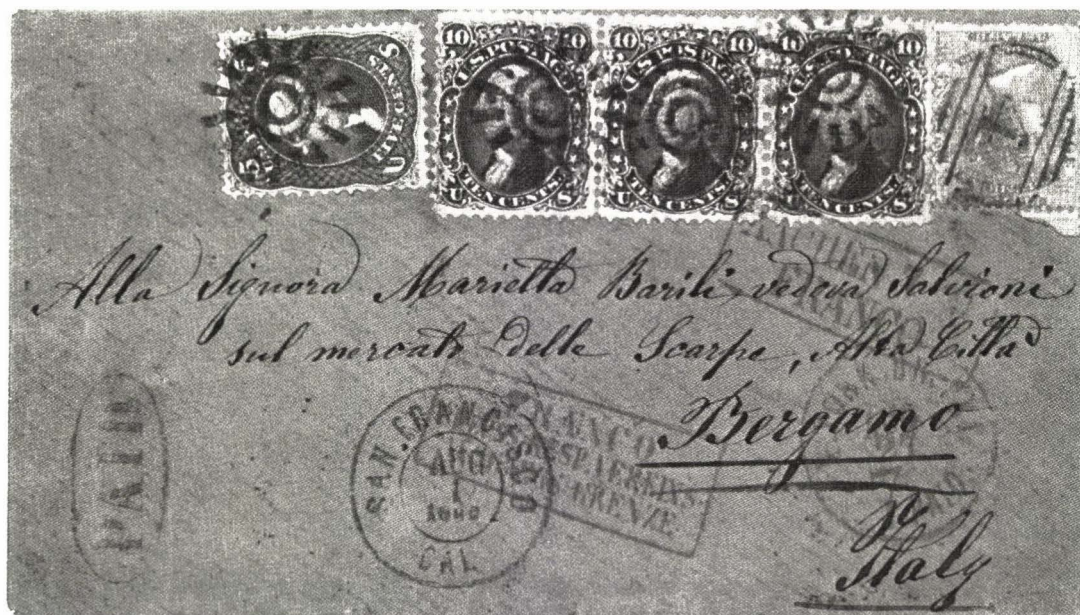 10 U.S. POSTAGE 10
TEN CENTS
U S
10 U.S. POSTAGE 10
TEN CENTS
U S
10 U.S. POSTAGE 10
TEN CENTS
U S
AACHEN
FRANCO
Alla Signora Marietta Barili vedova Salvioni
sul mercato delle Scarpe, Alta Città
Bergamo
Italy
PAID
SAN FRANCISCO
AUG
1
CAL
FRANCO